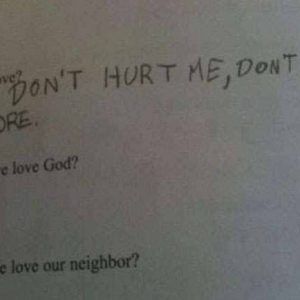 ove?
DON'T HURT ME, DON'T
ORE.
e love God?
e love our neighbor?